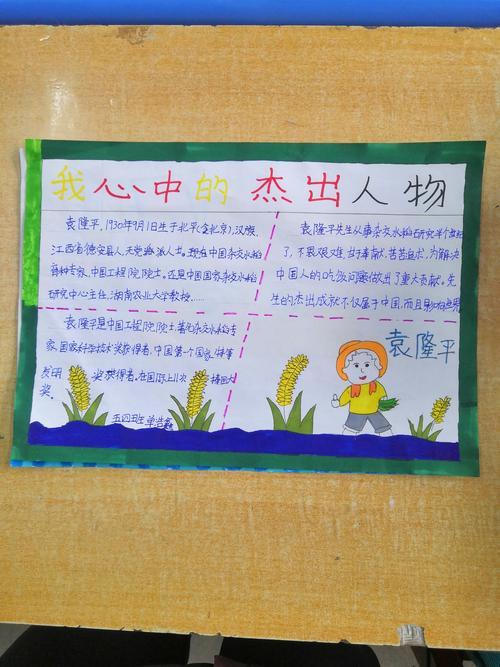 我心中的杰出人物
袁隆平,1930年9月1日生于北平(今北京),汉族,
江西省德安县人,无党派人士。现在中国杂交水稻
育种专家,中国工程院院士。还是中国国家杂交水稻
研究中心主任,湖南农业大学教授……
袁隆平先生从事杂交水稻研究半个世纪
了,不畏艰难,甘于奉献,苦苦追求,为解决
中国人的吃饭问题做出了重大贡献。先
生的杰出成就不仅属于中国,而且影响世界
袁隆平是中国工程院院士,著名杂交水稻专
家,国家科学技术奖获得者,中国第一个国家特等
发明奖获得者。在国际上11次
奖
五四班
袁隆平